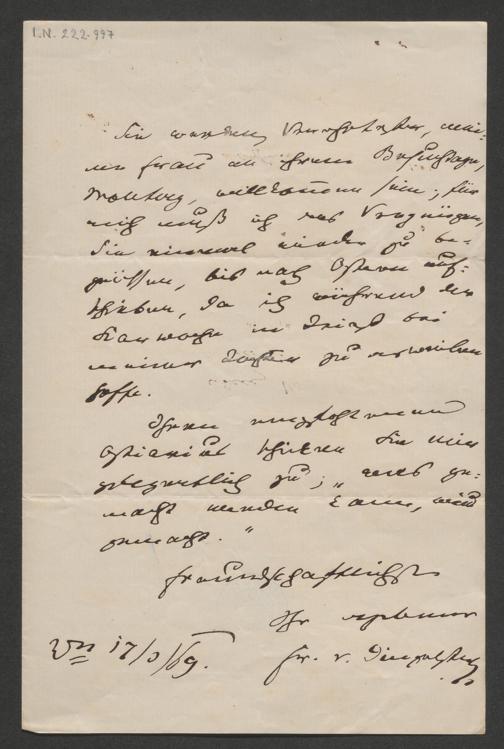 I.N. 222.997
Sie werden, Verehrtester, mei-
ner Frau an ihrem Besuchstage,
Montag, willkommen sein; für
mich muß ich das Vergnügen,
Sie einmal wieder zu be-
grüßen, bis nach Ostern auf-
schieben, da ich während der
Karwoche in bei
meiner Tochter zu verweilen
hoffe.
Ihren
schicken Sie mir
gelegentlich zu; „was ge-
macht werden kann, wird
gemacht."
Freundschaftlichst
Ihr ergebener
Fr. v. Dingelstedt
Wn 17/3/69.